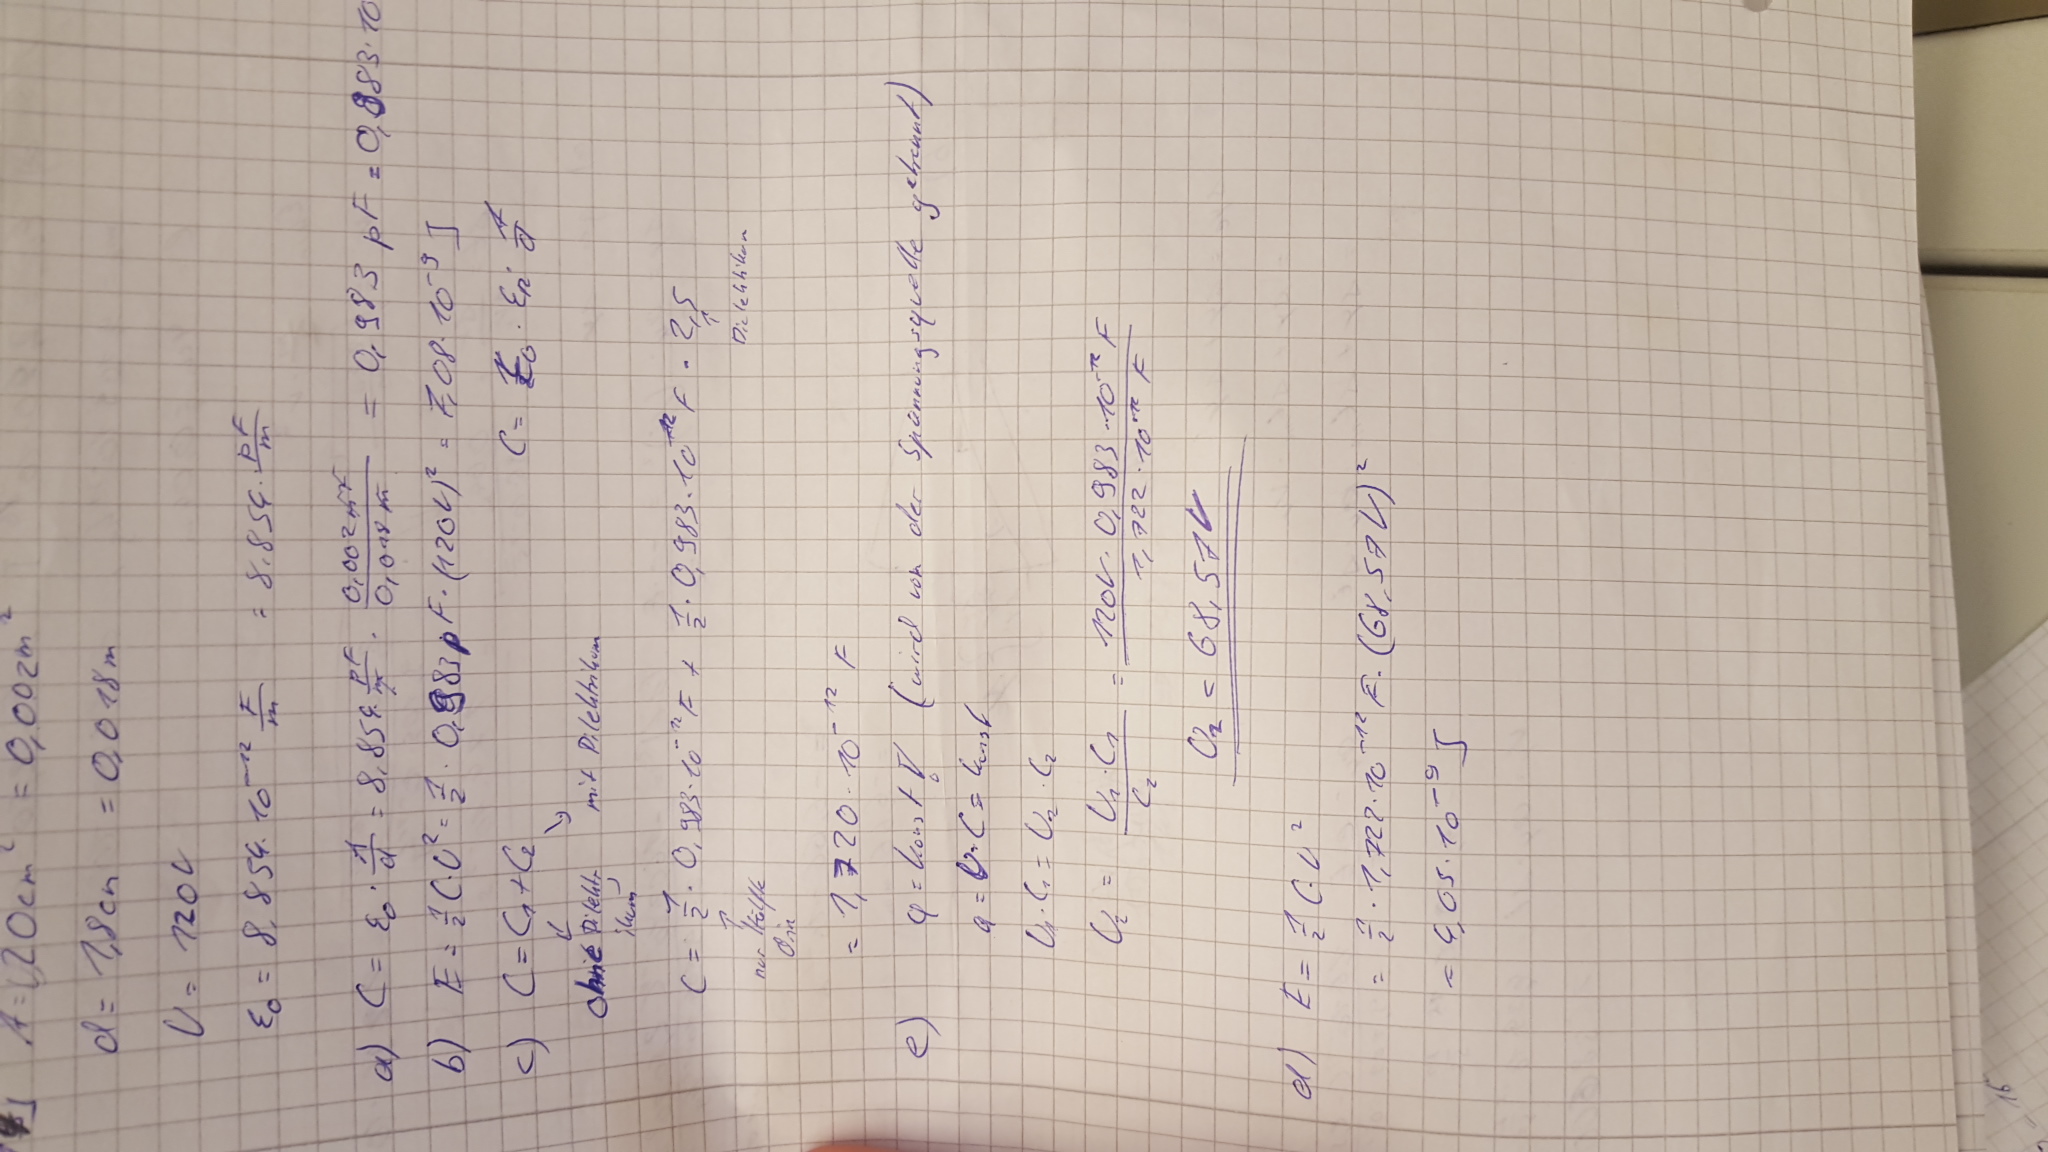 A = 20cm² = 0,002m²
d = 1,8cm = 0,018m
U = 120V
ε₀ = 8,854·10⁻¹² F/m = 8,854· pF/m
a) C = ε₀ · A/d = 8,854 pF/m · 0,002 m²/0,018 m = 0,983 pF = 0,983·10
b) E = 1/2 C·U² = 1/2 · 0,983pF·(120V)² = 7,08·10⁻⁹ J
c) C = C₁ + C₂ C = ε₀ · εr · A/d
ohne Dilektr mit Dilektrikum
ikum
C = 1/2 · 0,983·10⁻¹² F + 1/2 · 0,983·10⁻¹² F · 2,5
↑ ↑
nur Hälfte Dielektikum
= 1,720·10⁻¹² F
e) q = konst! (wird von der Spannungsquelle getrennt)
q = U·C = konst
U₁·C₁ = U₂·C₂
U₂ = U₁·C₁/C₂ = 120V·0,983·10⁻¹² F/1,722·10⁻¹² F
U₂ = 68,57V
d) E = 1/2 C·U²
= 1/2 · 1,722·10⁻¹² F·(68,57V)²
= 4,05·10⁻⁹ J